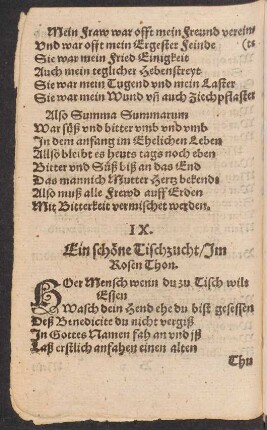 Mein Fraw war offt mein Freund vereint
Vnd war offt mein Ergester Feinde (te
Sie war mein Fried Einigkeit
Auch mein teglicher Hebenstreyt
Sie war mein Tugend vnd mein Laster
Sie war mein Wund vñ auch Ziechpflaster
Also Summa Summarum
War söß vnd bitter vmb vnd vmb
In dem anfang im Ehelichen Leben
Allso bleibt es heuts tags noch eben
Bitter vnd Süß biß an das End
Das mannich Mutter Hertz bekend
Also muß alle Frewd auff Erden
Mit Bitterkeit vermischet werden.
IX.
Ein schöne Tischzucht / Im
Rosen Thon.
HOer Mensch wenn du zu Tisch wilt
Essen
Wasch dein Hend ehe du bist gesessen
Deß Benedicite du nicht vergiß
In Gottes Namen fah an vnd jß
Laß erstlich anfahen einen alten
Thu